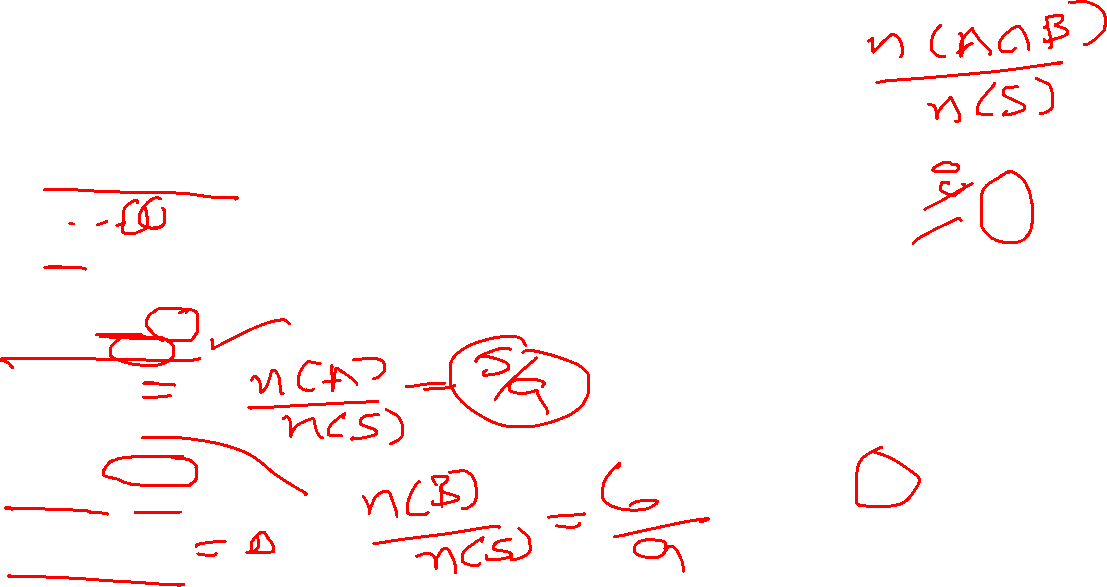 n(A∩B)
n(S)
n(A)
n(S)
= 5/9
n(B)
n(S)
= 6
9